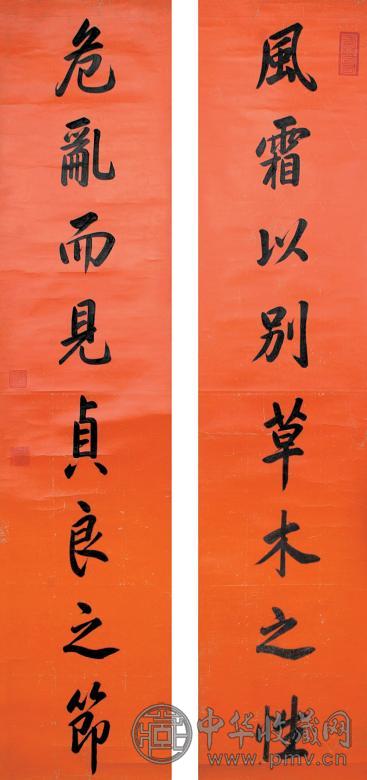 風霜以別草木之性
危亂而見貞良之節
中华收藏网
www.pmv.cn